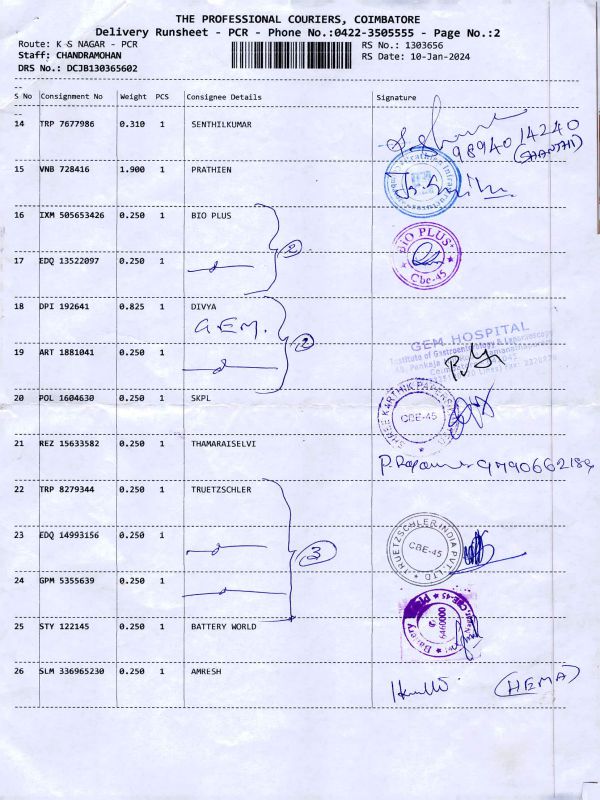 THE PROFESSIONAL COURIERS, COIMBATORE
Delivery Runsheet - PCR - Phone No.:0422-3505555 - Page No.:2
Route: K S NAGAR - PCR
RS No.: 1303656
Staff: CHANDRAMOHAN
RS Date: 10-Jan-2024
DRS No.: DCJB130365602
S No Consignment No Weight PCS Consignee Details Signature
14 TRP 7677986 0.310 1 SENTHILKUMAR
9894014240
(SHANTHI)
15 VNB 728416 1.900 1 PRATHIEN
16 IXM 505653426 0.250 1 BIO PLUS
2
BIO PLUS
Cbe-45
17 EDQ 13522097 0.250 1
18 DPI 192641 0.825 1 DIVYA
GEM.
2
GEM HOSPITAL
Institute of Gastroenterology & Laparoscopy
19 ART 1881041 0.250 1
20 POL 1604630 0.250 1 SKPL
SHREE KARTHIK PAPERS
CBE-45
21 REZ 15633582 0.250 1 THAMARAISELVI
22 TRP 8279344 0.250 1 TRUETZSCHLER
3
23 EDQ 14993156 0.250 1
TRUETZSCHLER INDIA PVT. LTD
CBE-45
24 GPM 5355639 0.250 1
25 STY 122145 0.250 1 BATTERY WORLD
Battery
6460000
CBE-45
26 SLM 336965230 0.250 1 AMRESH
(HEMA)